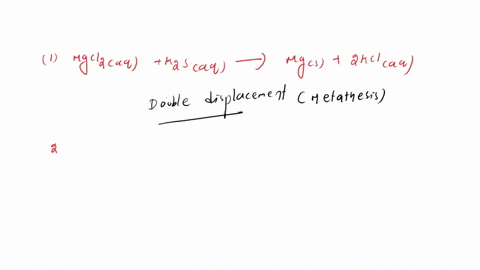 (1) MgCl2(aq) + K2S(aq) → Mg(s) + 2KCl(aq)
Double displacement (Metathesis)
2